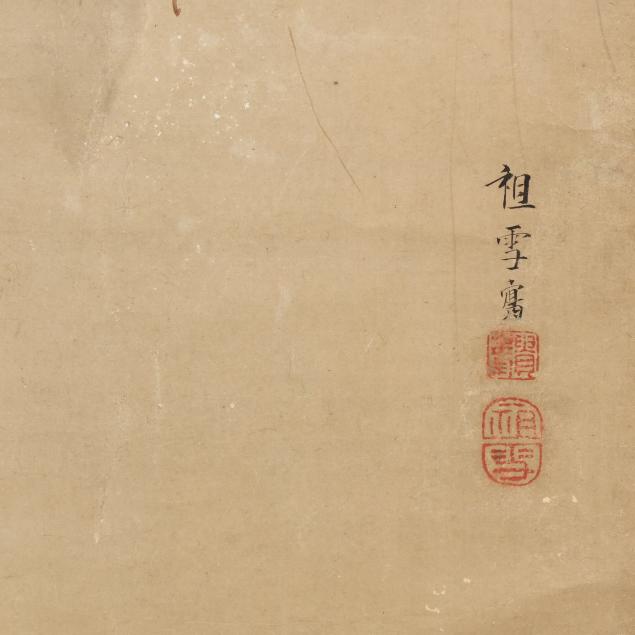 祖雪寫
祖雪